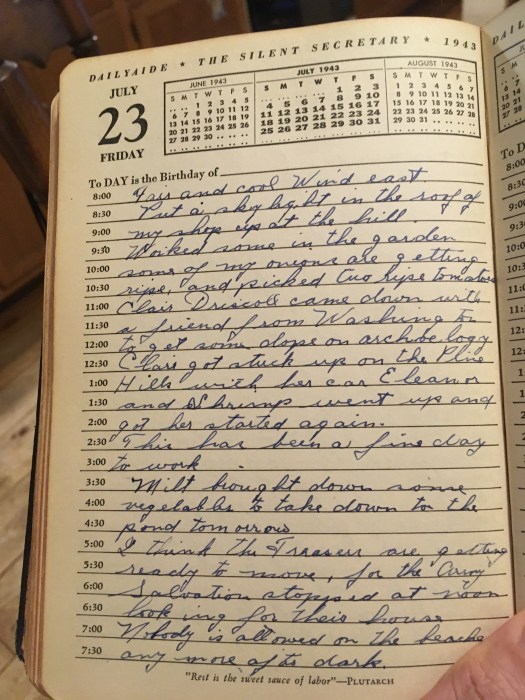 DAILYAIDE ★ THE SILENT SECRETARY ★ 1943
JULY
23
FRIDAY
JUNE 1943
S M T W T F S
.. .. 1 2 3 4 5
6 7 8 9 10 11 12
13 14 15 16 17 18 19
20 21 22 23 24 25 26
27 28 29 30 .. .. ..
JULY 1943
S M T W T F S
.. .. .. .. 1 2 3
4 5 6 7 8 9 10
11 12 13 14 15 16 17
18 19 20 21 22 23 24
25 26 27 28 29 30 31
AUGUST 1943
S M T W T F S
1 2 3 4 5 6 7
8 9 10 11 12 13 14
15 16 17 18 19 20 21
22 23 24 25 26 27 28
29 30 31 .. .. .. ..
To DAY is the Birthday of
8:00 Fair and cool Wind east
8:30 Put a sky light in the roof of
9:00 my shop up at the hill.
9:30 Worked some in the garden
10:00 some of my onions are getting
10:30 ripe, and picked two ripe tomatoes
11:00 Clair Driscoll came down with
11:30 a friend from Washing ton
12:00 to get some dope on archeology
12:30 Clair got stuck up on the Pine
1:00 Hills with her car Eleanor
1:30 and Shrimp went up and
2:00 got her started again.
2:30 This has been a fine day
3:00 to work.
3:30 Milt brought down some
4:00 vegelables to take down to the
4:30 pond tomorrow
5:00 I think the are getting
5:30 ready to move, for the
6:00 Salvation stopped at noon
6:30 look ing for their house
7:00 Nobody is allowed on the beache
7:30 any more afte dark.
"Rest is the sweet sauce of labor"—PLUTARCH